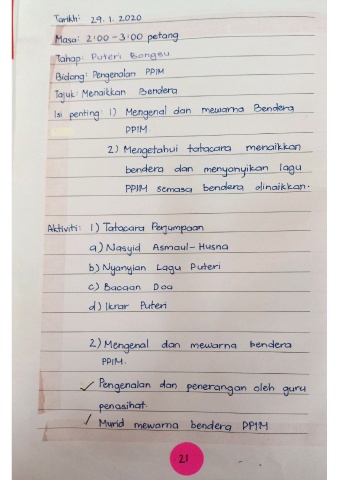 Tarikh: 29.1.2020
Masa: 2:00-3:00 petang
Tahap: Puteri Bongsu
Bidang: Pengenalan PPIM
Tajuk: Menaikkan Bendera
Isi penting: 1) Mengenal dan mewarna Bendera
PPIM
2) Mengetahui tatacara menaikkan
bendera dan menyanyikan lagu
PPIM semasa bendera dinaikkan.
Aktiviti: 1) Tatacara Perjumpaan
a) Nasyid Asmaul-Husna
b) Nyanyian Lagu Puteri
c) Bacaan Doa
d) Ikrar Puteri
2) Mengenal dan mewarna bendera
PPIM.
✓ Pengenalan dan penerangan oleh guru
penasihat.
✓ Murid mewarna bendera PPIM
21